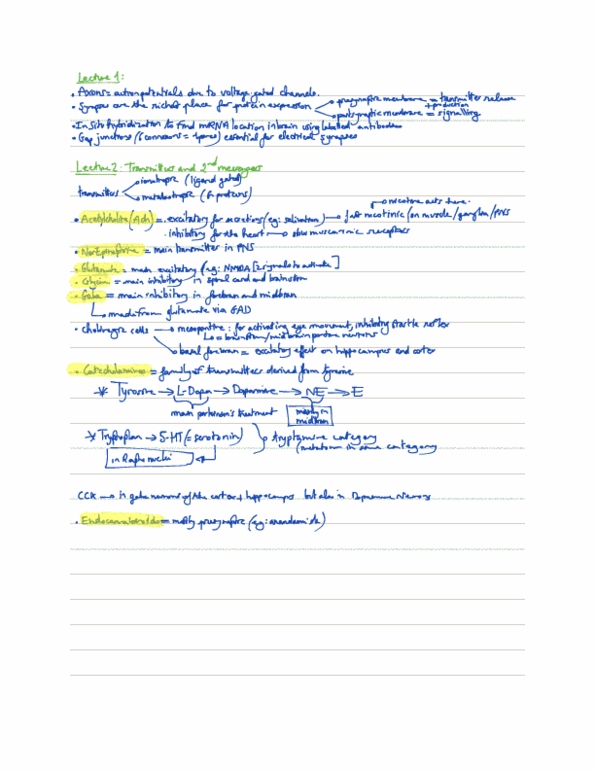 Lecture 1:
• Axons = action potentials due to voltage gated channels.
• Synapses are the richest place for protein expression → presynaptic membrane = transmitter release
+ production
→ postsynaptic membrane = signalling
• In Situ hybridization to find mRNA location in brain using labelled antibodies
• Gap junctions (6 connexons = 1pore) essential for electrical synapses
Lecture 2: Transmitters and 2nd messengers
transmitters → ionotropic (ligand gated)
→ metabotropic (G proteins)
→ nicotine acts here.
• Acetylcholine (Ach) = . excitatory for secretions (eg: salivation) → fast nicotinic (on muscle/ganglia/PNS
. inhibitory for the heart → slow muscarinic receptors
• Norepinephrine = main transmitter in PNS
• Glutamate = main excitatory (eg: NMDA [2 signals to activate]
• Glycine = main inhibitory in spinal cord and brainstem
• Gaba = main inhibitory in forebrain and midbrain
→ made from glutamate via GAD
• cholinergic cells → mesopontine: for activating eye movement, inhibiting startle reflex
↳ = brainstem/midbrain pontine neurons
→ basal forebrain = excitatory effect on hippocampus and cortex
• Catecholamines = family of transmitters derived from tyrosine
* Tyrosine → L-Dopa → Dopamine → NE → E
main parkinson's treatment
mostly in
midbrain
* Tryptophan → 5-HT (= serotonin) } → tryptamine category
(melatonin in same category
in Raphe nuclei
CCK → in gaba neurons of the cortex + hippocampus but also in Dopamine neurons
• Endocannabinoids = mostly presynaptic (eg: anandamide)